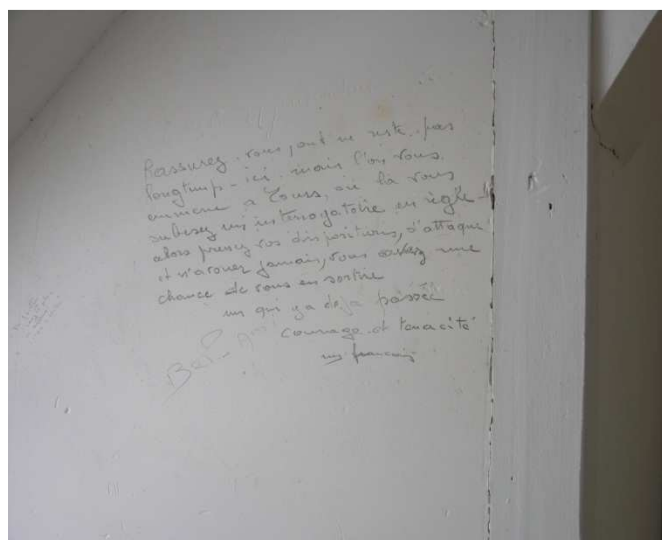 Rassurez-vous, ont ne reste pas
longtemp-ici. mais l'on vous.
emmene a Tours, où là vous
subesez un interrogatoire en règle-
alors prenez vos dispositions, d'attaque
et n'avouer jamais, vous avez une
chance de vous en sortire
un qui y a deja passée
courage et tenacité
un francais